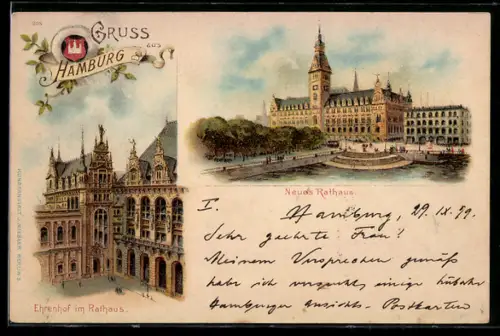 GRUSS
aus
HAMBURG
Neues Rathaus.
Ehrenhof im Rathaus.
I. Hamburg, 29.IX.99.
Sehr geehrte Frau!
Meinem Versprechen gemäß
habe ich versucht, einige hübsche
Hamburger Ansichts-Postkarten